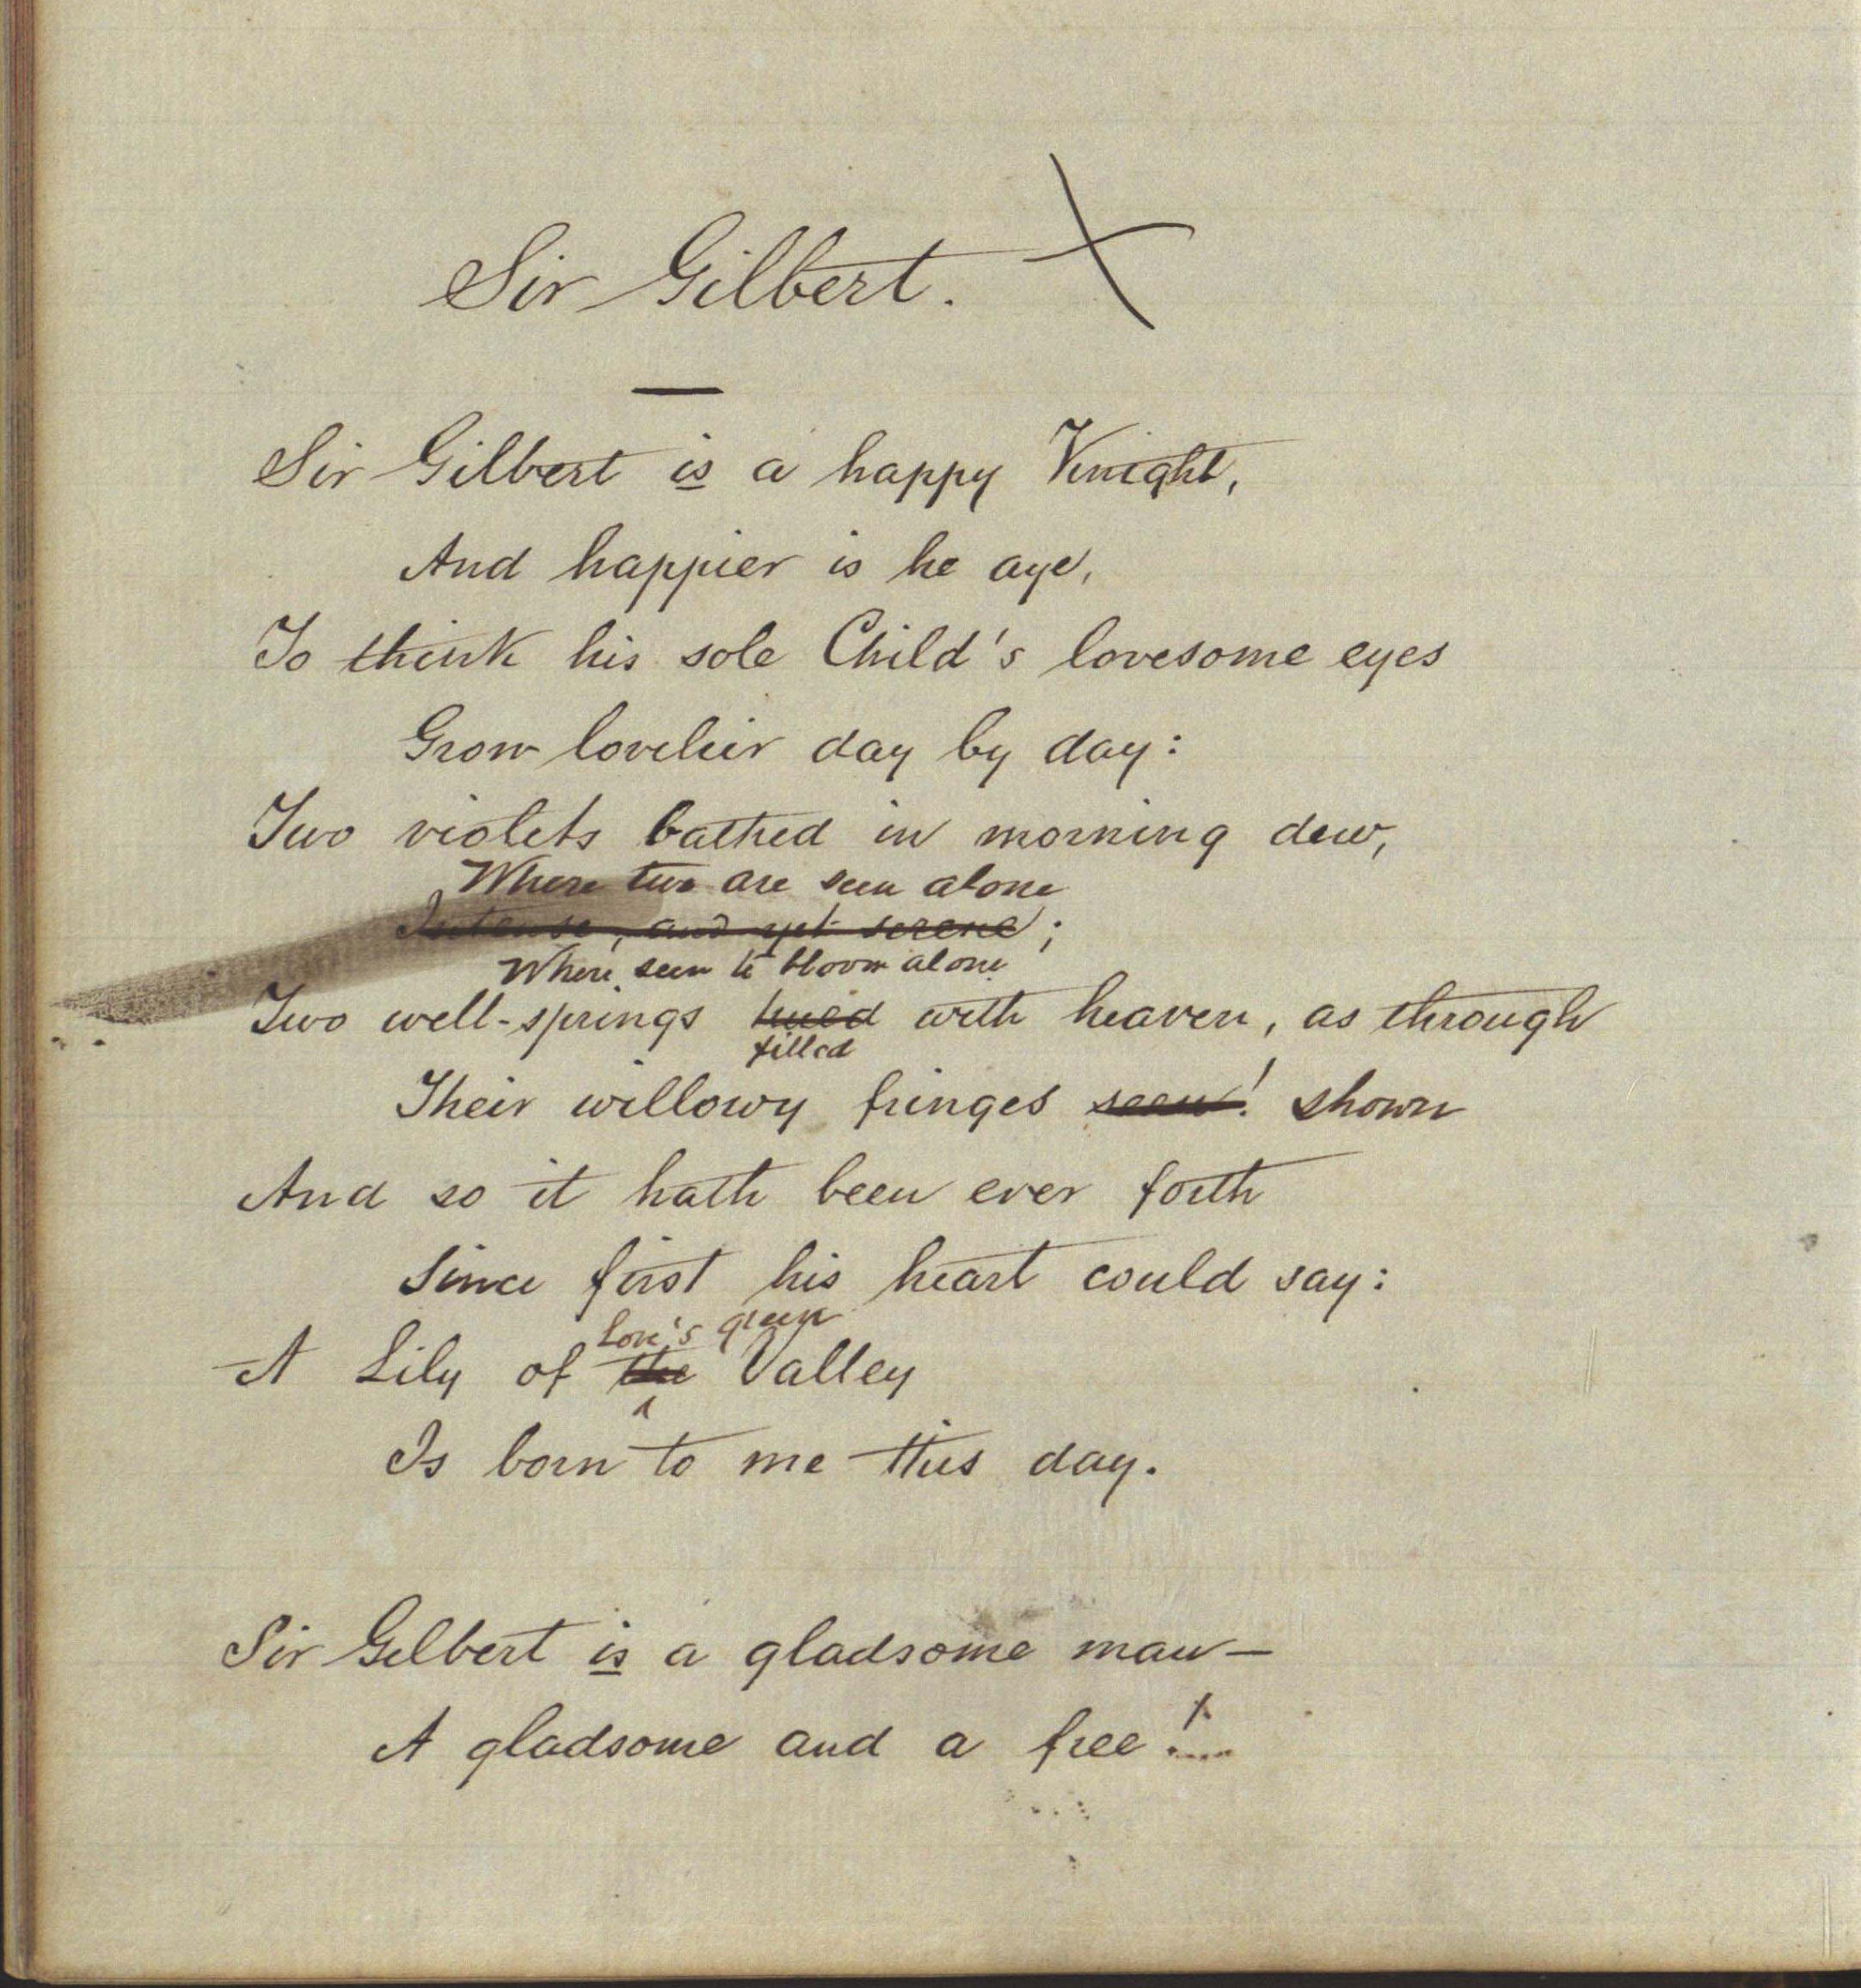 Sir Gilbert.
Sir Gilbert is a happy Knight,
And happier is he aye,
To think his sole Child's lovesome eyes
Grow lovelier day by day:
Two violets bathed in morning dew,
Where two are seen alone
Intense, and yet serene;
Where seen to bloom alone
Two well-springs hued with heaven, as through
filled
Their willowy fringes seen! shown
And so it hath been ever forth
Since first his heart could say:
Love's green
A Lily of the Valley
Is born to me this day.
Sir Gilbert is a gladsome man—
A gladsome and a free!